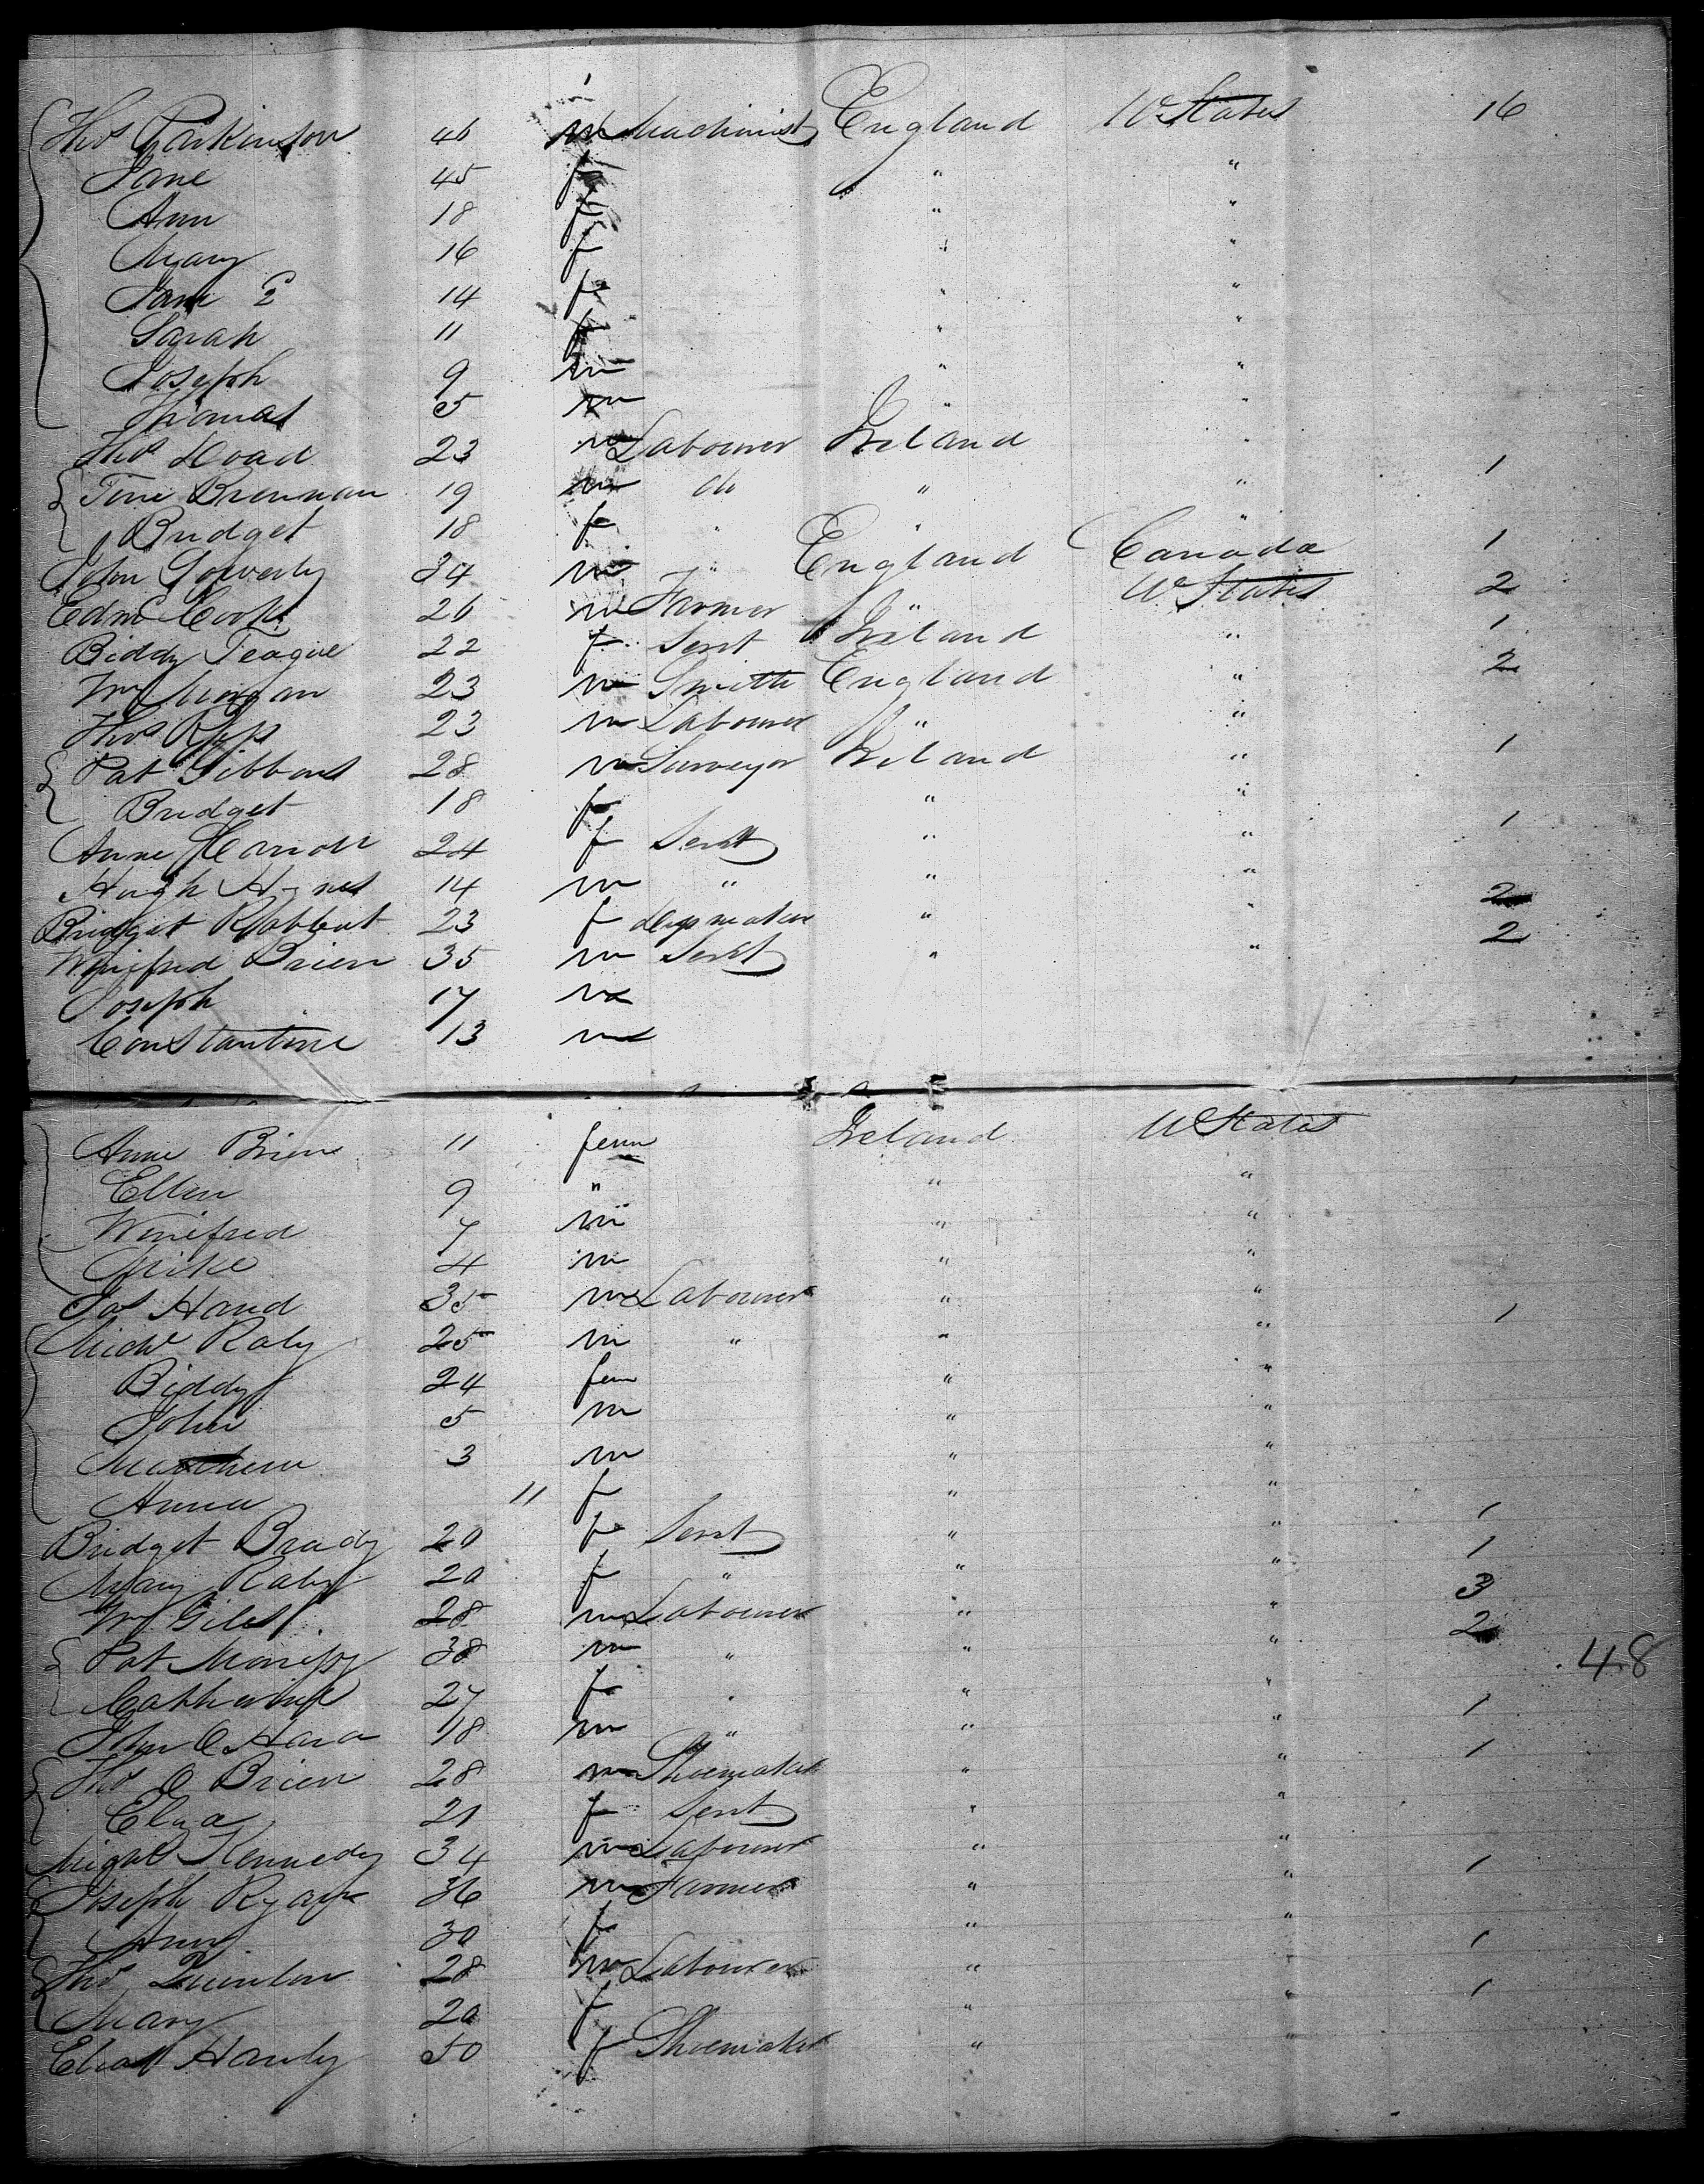 Thos Parkinson 46 m Machinist England U States 16
Jane 45 f " "
Ann 18 f " "
Mary 16 f " "
Jane E 14 f " "
Sarah 11 f " "
Joseph 9 m " "
Thomas 5 m " "
Thos Doad 23 m Labourer Ireland "
Brennan 19 m do " " 1
Bridget 18 f " " "
John Sowerby 34 m " England Canada 1
Edmd Cook 26 m Farmer " U States 2
Biddy Teague 22 f Servt Ireland " 1
Wm Morgan 23 m Smith England " 2
Thos 23 m Labourer " "
Pat Gibbons 28 m Surveyor Ireland " 1
Bridget 18 f " "
Anne Carroll 24 f Servt " " 1
Hugh Hynes 14 m " " "
Bridget 23 f " " 2
Winifred Brien 35 m Servt " " 2
Joseph 17 m
Constantine 13 m
Anne Brien 11 fem Ireland U States
Ellen 9 " " "
Winifred 7 m " "
Mike 4 m " "
Jas Hand 35 m Labourer " "
Michl Raby 25 m " " " 1
Biddy 24 fem " "
John 5 m " "
Matthew 3 m " "
Anna 11 f " "
Bridget Brady 20 f Servt " " 1
Mary Raby 20 f " " " 1
Wm Giles 28 m Labourer " " 3
Pat 38 m " " " 2
48
Catherine 27 f " " "
John O Hara 18 m " " " 1
Thos O Brien 28 m Shoemaker " " 1
Eliza 21 f Servt " "
Michl Kennedy 34 m Labourer " "
Joseph Ryan 36 m Farmer " " 1
Ann 30 f " "
Thos Quinlan 28 m Labourer " " 1
Mary 20 f " " 1
Hanly 50 f Shoemaker " "